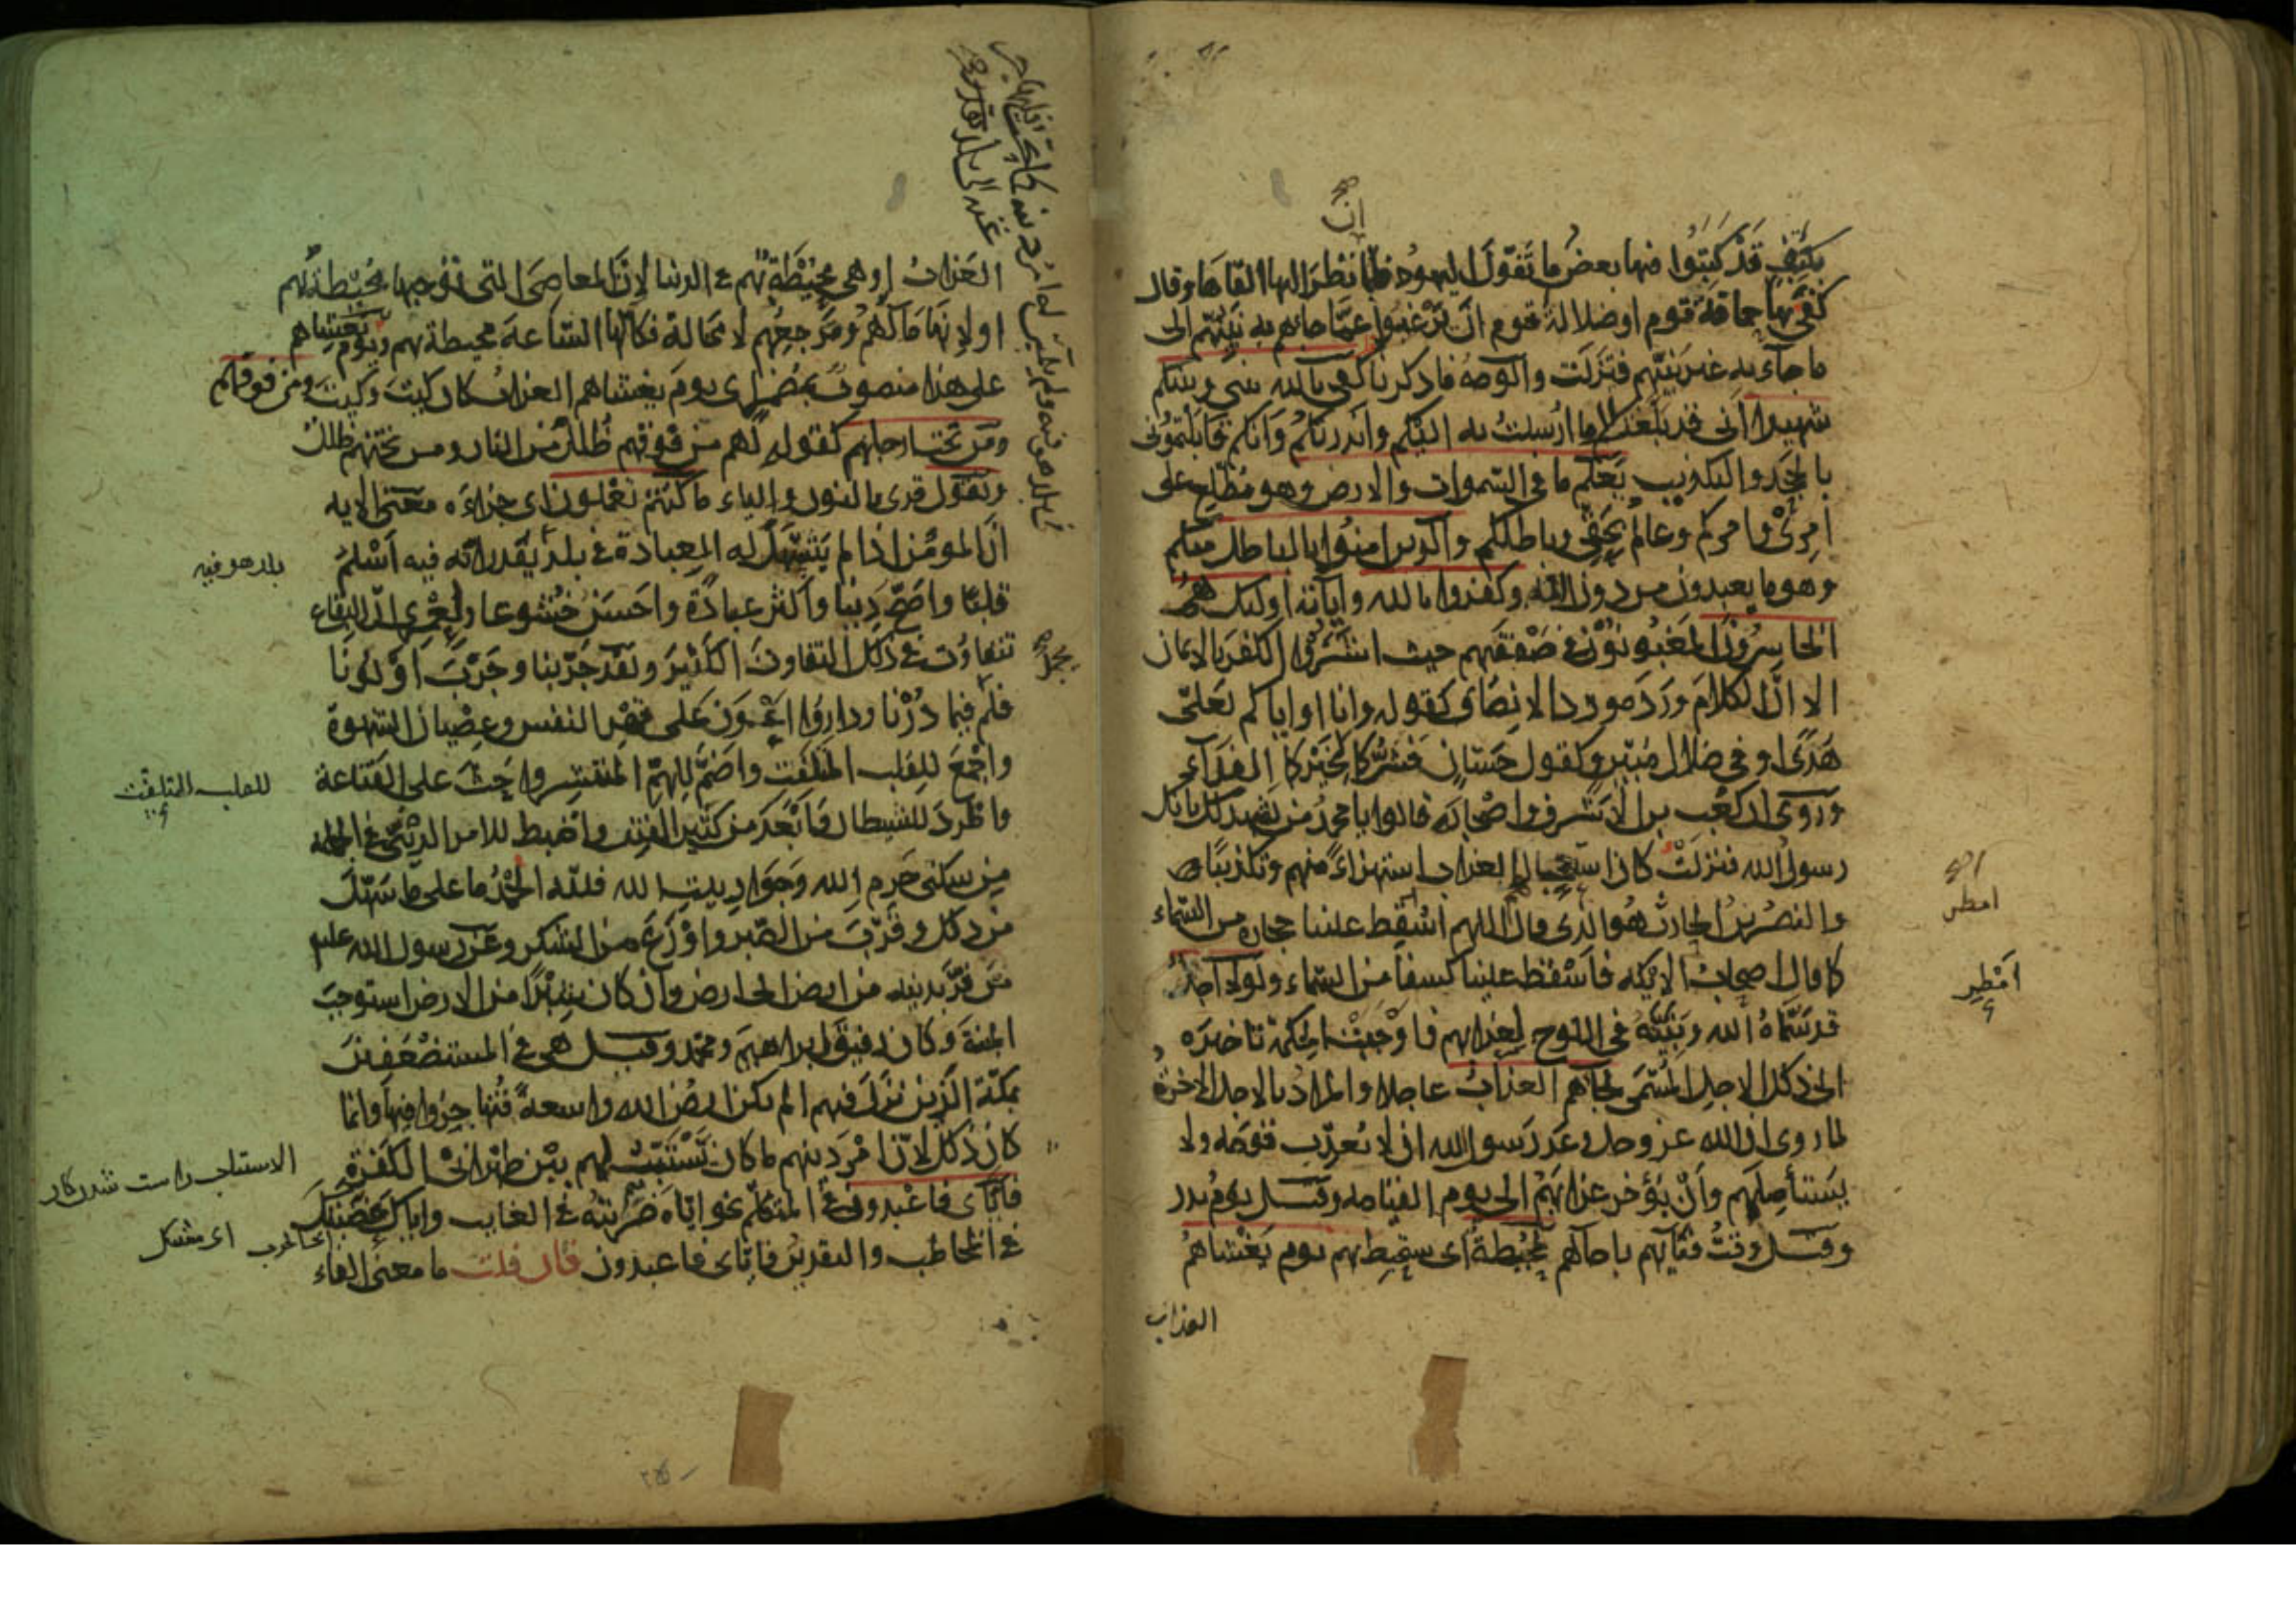 ان
بكتف قد كتبوا فيها بعض ما تقول اليهود فلما نظر اليها القاها وقال
كفى بها حماقة قوم او ضلالة قوم ان يرغبوا عما جاءهم به نبيهم الى
ما جاء به غير نبيهم فنزلت والوجه ما ذكرناه كفى بالله بيني وبينكم
شهيدا اني قد بلغتكم ما ارسلت به اليكم وانذرتكم وانكم قابلتموني
بالجحد والتكذيب يعلم ما في السموات والارض وهو مطلع على
امري وامركم وعالم بحقي وباطلكم والذين امنوا بالباطل منكم
وهو ما يعبدون من دون الله وكفروا بالله واياته اولئك هم
الخاسرون المغبونون في صفقتهم حيث اشتروا الكفر بالايمان
الا ان الكلام ورد مورد الانصاف كقوله وانا او اياكم لعلى
هدى او في ضلال مبين وكقول حسان فشركما لخيركما الفداء
وروى ان كعب بن الاشرف واصحابه قالوا يا محمد من يشهد لك بانك
رسول الله فنزلت كان استعجال العذاب استهزاء منهم وتكذيبا
والنضر بن الحارث هو الذي قال اللهم اسقط علينا حجارة من السماء
كما قال اصحاب الايكة فاسقط علينا كسفا من السماء ولولا اجل
قد سماه الله وبينه في اللوح لعذابهم واوجبت الحكمة تاخيره
الى ذلك الاجل المسمى لجاءهم العذاب عاجلا والمراد بالاجل الاخرة
لما روى ان الله عز وجل وعد رسول الله ان لا يعذب قومه ولا
يستأصلهم وان يؤخر عذابهم الى يوم القيامة وقيل يوم بدر
وقيل وقت فنائهم باجالهم لمحيطة اى ستحيط بهم يوم يغشاهم
العذاب
امطر
امطر
العذاب او هي محيطة بهم في الدنيا لان المعاصي التي توجبها محيطة بهم
او لانها مآلهم ومرجعهم لا محالة فكانها الساعة محيطة بهم ويوم يغشاهم
على هذا منصوب بمضمر اى يوم يغشاهم العذاب كان كيت وكيت ومن فوقهم
ومن تحت ارجلهم كقوله لهم من فوقهم ظلل من النار ومن تحتهم ظلل
ونقول قرى بالنون والياء ما كنتم تعملون اى جزاءه معنى الايه
ان المؤمن اذا لم يتسهل له العبادة في بلد يقدر انه فيه اسلم
قلبا واصح دينا واكثر عبادة واحسن خشوعا ولعمري ان البقاع
تتفاوت في ذلك التفاوت الكثير ولقد جربنا وجرب اولونا
فلم فيما درنا وداروا اعون على قهر النفس وعصيان الشهوة
واجمع للقلب المتلفت واضم للهم المنتشر واحث على القناعة
واطرد للشيطان وابعد من كثير الفتن واضبط للامر الديني في الجملة
من سكنى حرم الله وجوار بيت الله فلله الحمد على ما سهل
من ذلك وقرب من الصبر واوزع من الشكر وعن رسول الله عليه
من فر بدينه من ارض الى ارض وان كان شبرا من الارض استوجب
الجنة وكان رفيق ابراهيم ومحمد وقيل هي في المستضعفين
بمكة الذين نزل فيهم الم تكن ارض الله واسعة فتهاجروا فيها وانما
كان ذلك لان امر دينهم ما كان يستتب لهم بين ظهراني الكفرة
فاياى فاعبدون في المتكلم نحو اياه ضربته في الغايب واياك عضتك
في المخاطب والتقدير فاياى فاعبدون فان قلت ما معنى الفاء
بلد هو فيه
للقلب المتلفت
الاستتباب راست شدن كار